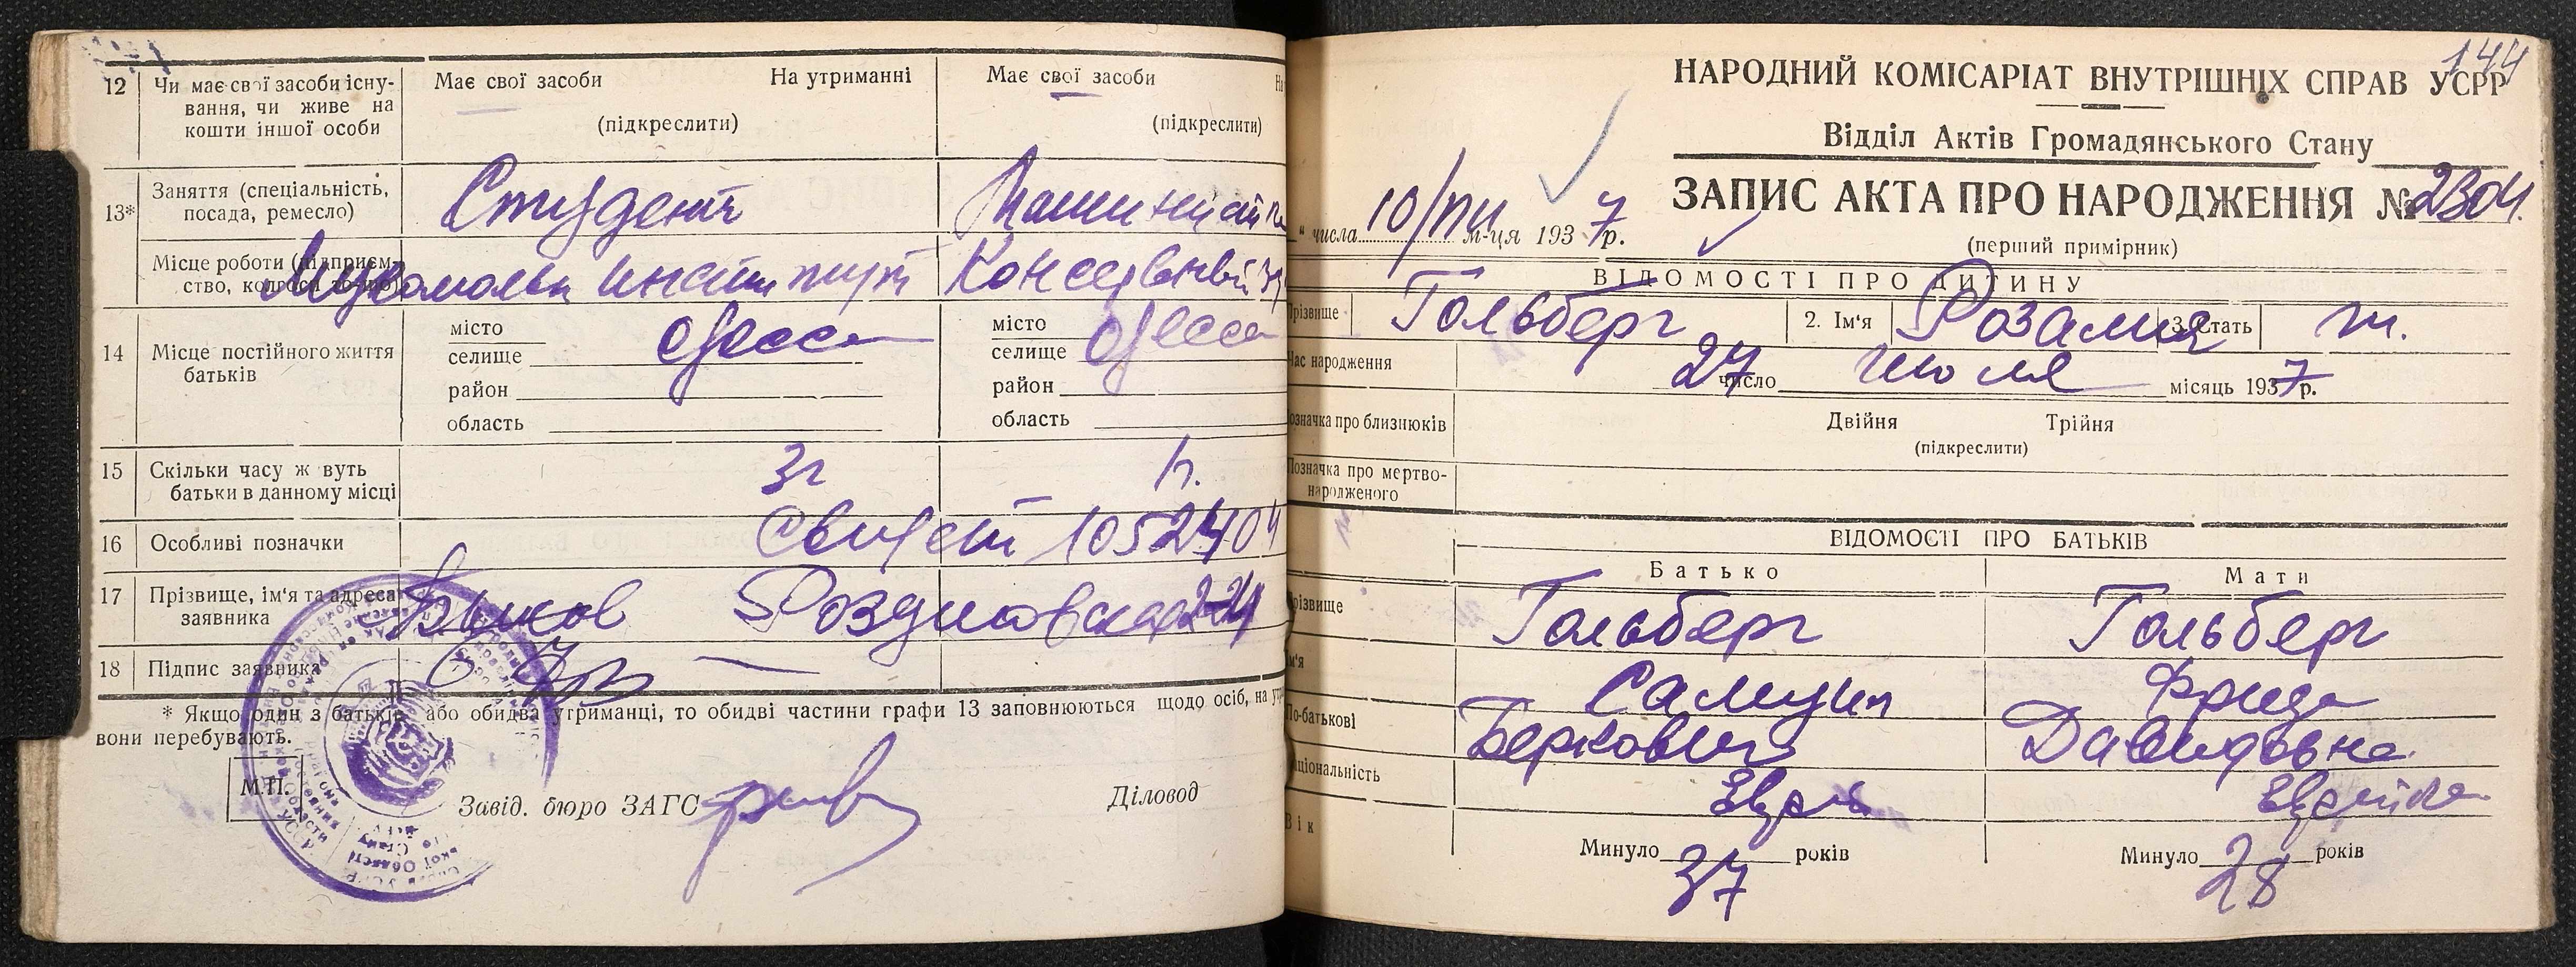 12 Чи має свої засоби існу-
вання, чи живе на
кошти іншої особи
Має свої засоби На утриманні
(підкреслити)
Має свої засоби
(підкреслити)
13* Заняття (спеціальність,
посада, ремесло)
Студент
Місце роботи (підприєм-
ство, колгосп тощо)
Мукомольн институт Консервный
14 Місце постійного життя
батьків
місто
селище Одесса
район
область
місто
селище Одесса
район
область
15 Скільки часу живуть
батьки в данному місці
3г
16 Особливі позначки
17 Прізвище, ім'я та адреса
заявника
18 Підпис заявника
* Якщо один з батьків або обидва утриманці, то обидві частини графи 13 заповнюються щодо осіб, на
вони перебувають.
М.П.
Завід. бюро ЗАГС Діловод
144
НАРОДНИЙ КОМІСАРІАТ ВНУТРІШНІХ СПРАВ УСРР
Відділ Актів Громадянського Стану
ЗАПИС АКТА ПРО НАРОДЖЕННЯ № 2304.
" числа 10/VIII м-ця 1937р.
(перший примірник)
ВІДОМОСТІ ПРО ДИТИНУ
Прізвище Гольберг 2. Ім'я Розалия 3. Стать ж.
Час народження 27 число июля місяць 1937р.
Позначка про близнюків Двійня Трійня
(підкреслити)
Позначка про мертво-
народженого
ВІДОМОСТІ ПРО БАТЬКІВ
Батько Мати
Прізвище Гольберг Гольберг
Ім'я Самуил Фрида
По-батькові Беркович Давидовна
Національність Еврей Еврейка
Вік
Минуло 37 років Минуло 28 років